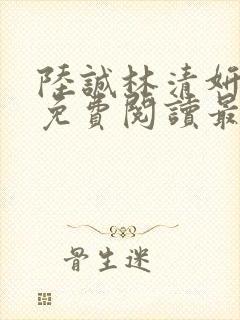 陸誠林清妍
免費閱讀最
骨生迷